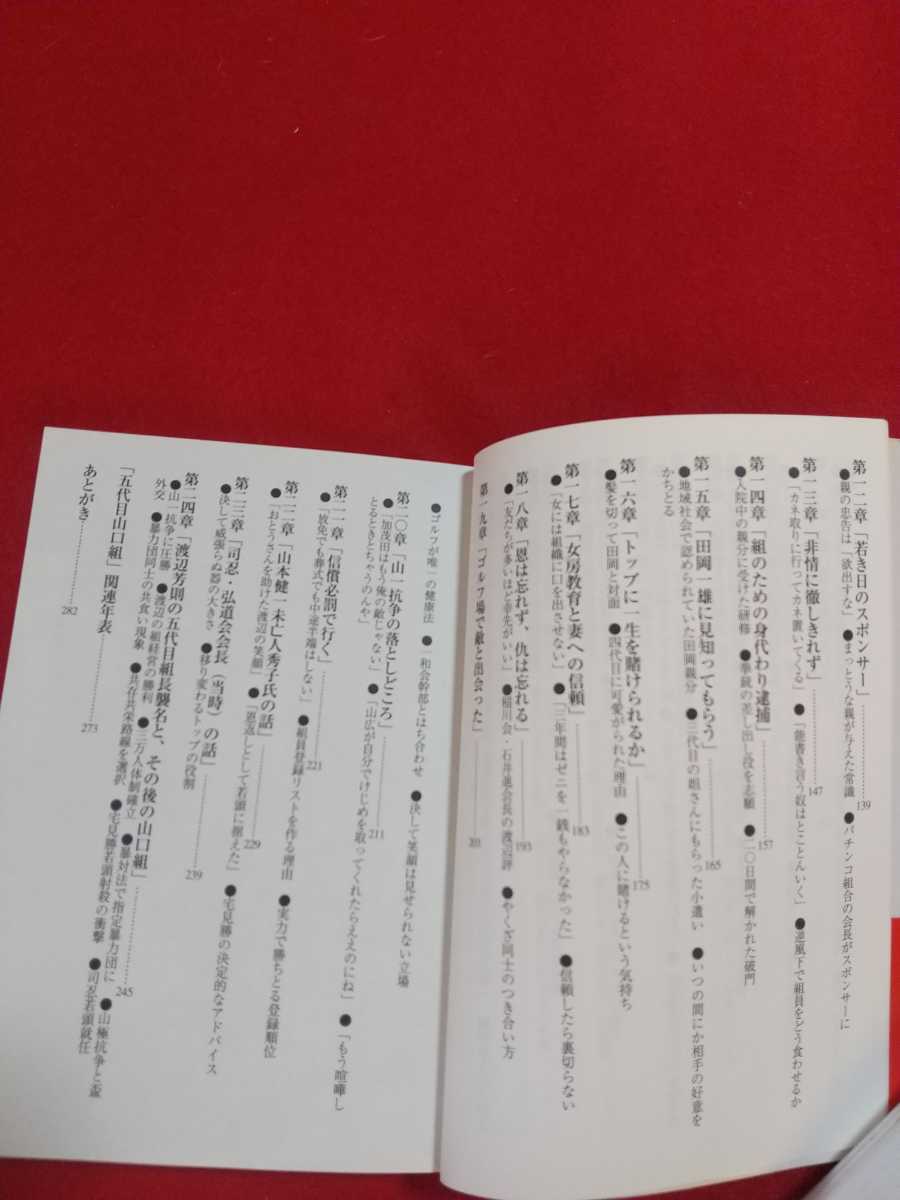 第一二章「若き日のスポンサー」……139
●親の忠告は「欲出すな」 ●まっとうな親が与えた常識 ●パチンコ組合の会長がスポンサーに
第一三章「非情に徹しきれず」……147
●「カネ取りに行ってカネ置いてくる」 ●「能書き言う奴はとことんいく」 ●逆風下で組員をどう食わせるか
第一四章「組のための身代わり逮捕」……157
●入院中の親分に受けた研修 ●拳銃の差し出し役を志願 ●二〇日間で解かれた破門
第一五章「田岡一雄に見知ってもらう」……165
●地域社会で認められていた田岡親分 ●三代目の姐さんにもらった小遣い ●いつの間にか相手の好意を
かちとる
第一六章「トップに一生を賭けられるか」……175
●髪を切って田岡と対面 ●四代目に可愛がられた理由 ●この人に賭けるという気持ち
第一七章「女房教育と妻への信頼」……183
●「女には組織に口を出させない」 ●「三年間はゼニを一銭もやらなかった」 ●信頼したら裏切らない
第一八章「恩は忘れず、仇は忘れる」……193
●「友だちが多いほど幸先がいい」 ●稲川会・石井進会長の渡辺評 ●やくざ同士のつき合い方
第一九章「ゴルフ場で敵と出会った」……201
●ゴルフが唯一の健康法 ●一和会幹部とはち合わせ ●決して笑顔は見せられない立場
第二〇章「山一抗争の落としどころ」……211
●「加茂田はもう俺の敵じゃない」 ●「山広が自分でけじめを取ってくれたらええのにね」 ●「もう喧嘩し
とるときとちゃうのんや」
第二一章「信償必罰で行く」……221
●「放免でも葬式でも中途半端はしない」 ●組員登録リストを作る理由 ●実力で勝ちとる登録順位
第二二章「山本健一未亡人秀子氏の話」……229
●「おとうさんを助けた渡辺の笑顔」 ●「恩返しとして若頭に据えた」 ●宅見勝の決定的なアドバイス
第二三章「司忍・弘道会会長(当時)の話」……239
●決して威張らぬ器の大きさ ●移り変わるトップの役割
第二四章「渡辺芳則の五代目組長襲名と、その後の山口組」……245
●山一抗争に圧勝 ●渡辺の組経営の勝利 ●三万人体制確立 ●暴対法で指定暴力団に ●山極抗争と盃
外交 ●暴力団同士の共食い現象 ●共存共栄路線を選択 ●宅見勝若頭射殺の衝撃 ●司忍若頭就任
「五代目山口組」関連年表……273
あとがき……282